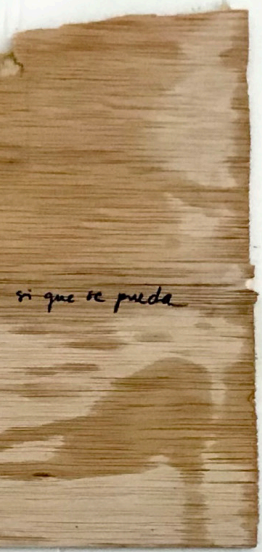 si que se pueda